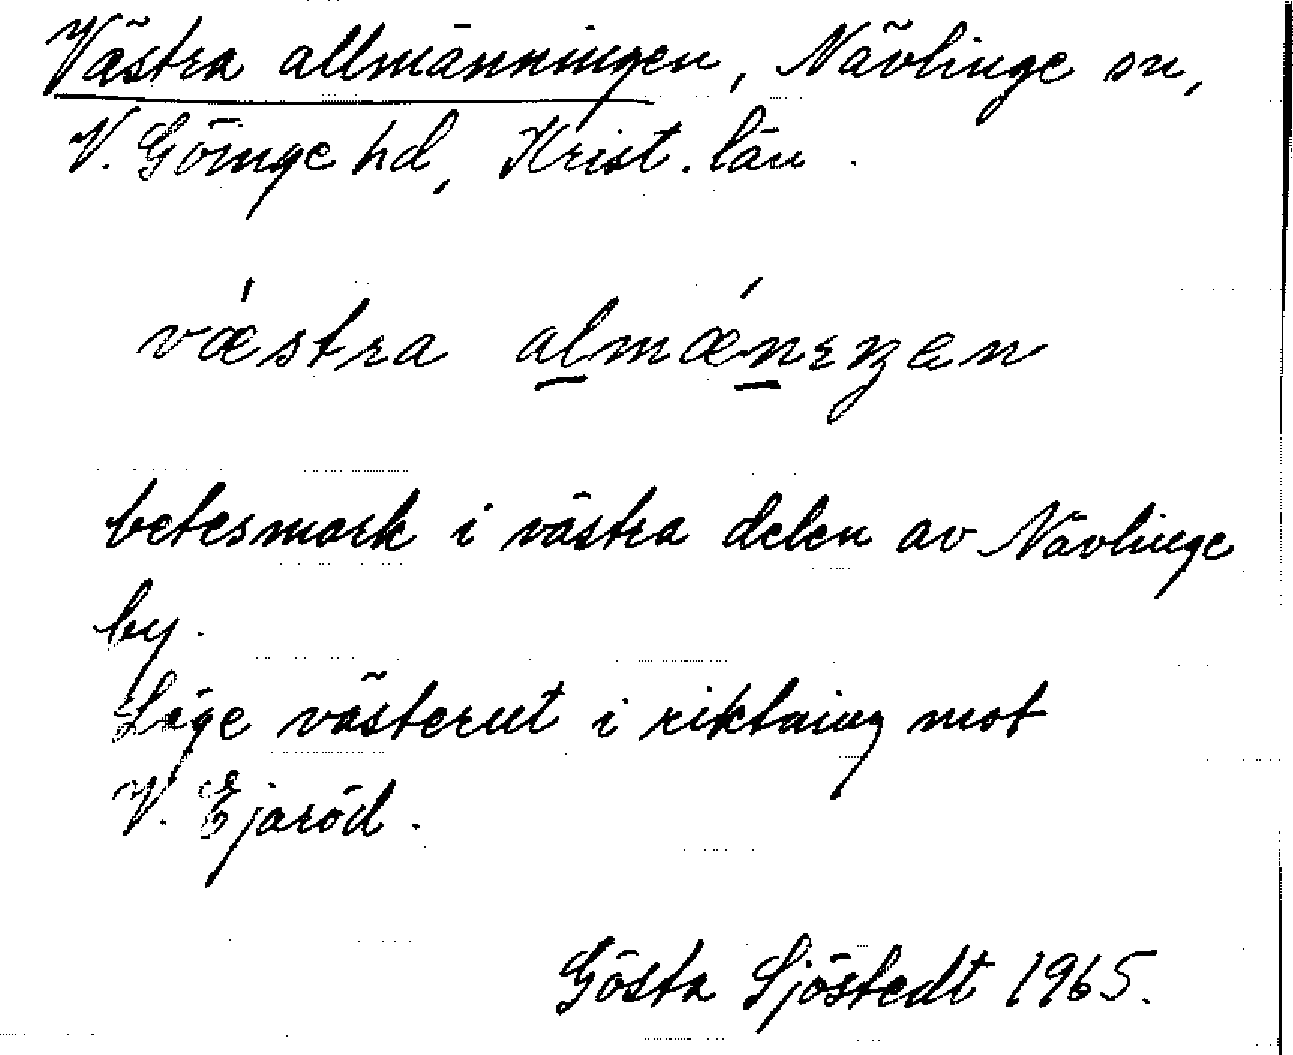 Västra allmänningen, Nävlinge sn,
V. Göinge hd, Krist. län.
væ´stra almæ´nıŋen
betesmark i västra delen av Nävlinge
by.
Läge västerut i riktning mot
V. Ejaröd.
Gösta Sjöstedt 1965.